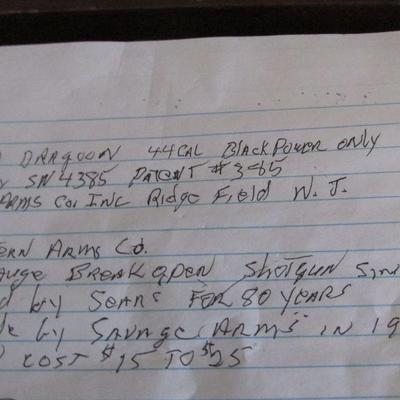 DRAGOON 44 CAL BlackPower only
SN 4385 PATENT # 3485
ARMS Co. INC Ridge Field N.J.
ERN ARMS Co.
auge BREAK OPEN SHOTGUN SIN
d by SEARS FOR 80 YEARS
e by SAVAGE ARMS in 19
COST $15 TO $25